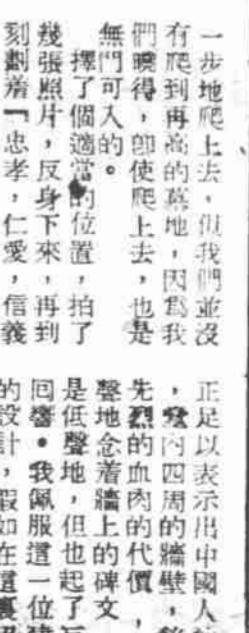 一步地爬上去，但我們並沒
有爬到再高的墓地，因爲我
們曉得，卽使爬上去，也是
無門可入的。
擇了個適當的位置，拍了
幾張照片，反身下來，再到
刻劃着「忠孝，仁愛，信義
正足以表示出中國人
，內四周的牆壁，
先烈的血肉的代價，
聲地念着牆上的碑文
是低聲地，但也起了
回響。我佩服這一位
的設計，假如在這裏